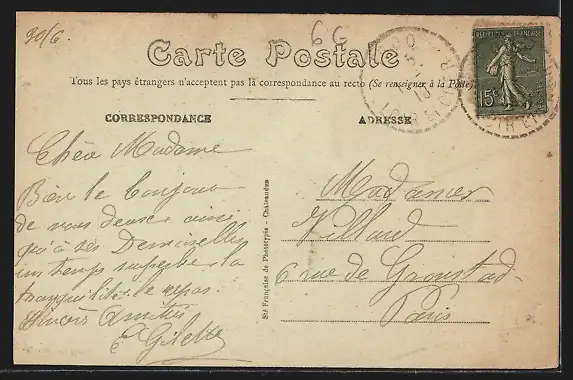 30/6
6G
Carte Postale
Tous les pays étrangers n'acceptent pas la correspondance au recto (Se renseigner à la Poste)
REPUBLIQUE FRANÇAISE
15c
LOIR ET CHER
CORRESPONDANCE
ADRESSE
Chère Madame
Bien le bonjour
de nous deux ainsi
qu'à vos Demoiselles
un temps superbe la
tranquilité le repos
Sincères Amitiés
Gilette
Sté Française de Phototypie - Châteaudun
Villard
6 rue de
Paris